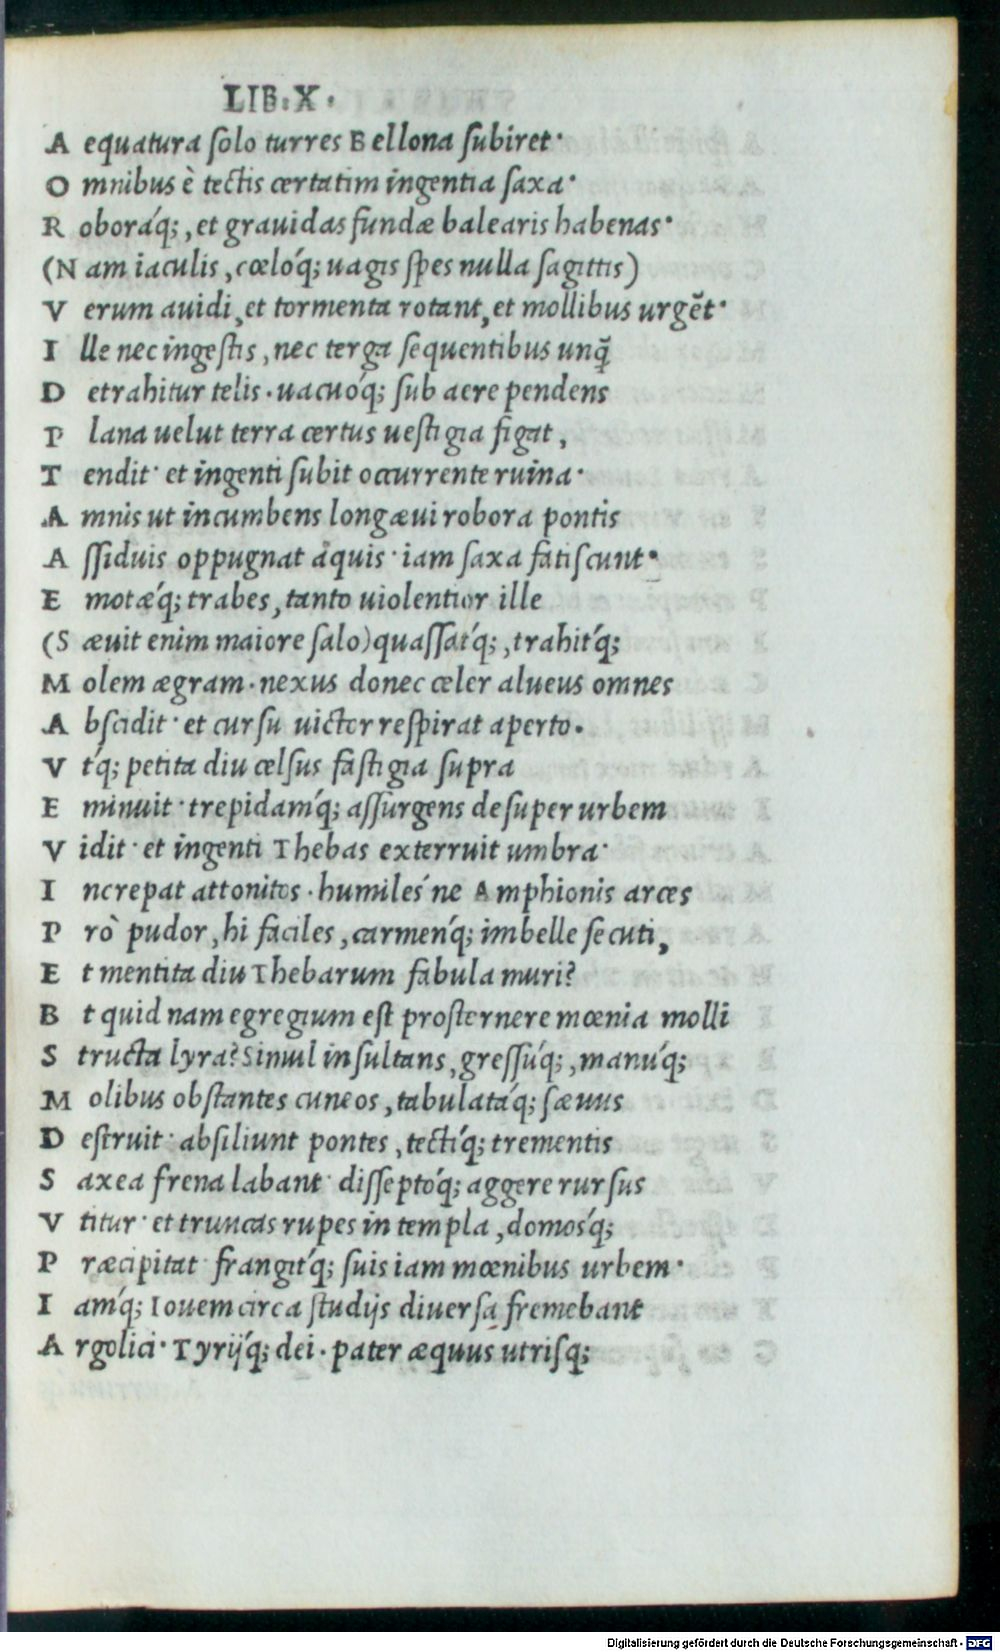 LIB. X.
A equatura solo turres Bellona subiret·
O mnibus è tectis certatim ingentia saxa·
R oboráq;, et grauidas fundæ balearis habenas·
(N am iaculis, cœlóq; uagis spes nulla sagittis)
V erum auidi, et tormenta rotant, et mollibus urgēt·
I lle nec ingestis, nec terga sequentibus unq̃
D etrahitur telis. uacuóq; sub aere pendens
P lana uelut terra certus uestigia figat,
T endit· et ingenti subit occurrente ruina·
A mnis ut incumbens longæui robora pontis
A ssiduis oppugnat aquis· iam saxa fatiscunt·
E motæ´q; trabes, tanto uiolentior ille
(S æuit enim maiore salo) quassat´q;, trahit´q;
M olem ægram. nexus donec celer alueus omnes
A bscidit· et cursu uictor respirat aperto.
V t´q; petita diu celsus fastigia supra
E minuit· trepidam´q; assurgens desuper urbem
V idit· et ingenti Thebas exterruit umbra·
I ncrepat attonitos. humiles´ne Amphionis arces
P rò pudor, hi faciles, carmen´q; imbelle secuti,
E t mentita diu Thebarum fabula muri?
E t quid nam egregium est prosternere mœnia molli
S tructa lyra? Simul insultans, gressú´q;, manú´q;
M olibus obstantes cuneos, tabulatá´q; sæuus
D estruit· absiliunt pontes, tectí´q; trementis
S axea frena labant· disseptó´q; aggere rursus
V titur· et truncas rupes in templa, domos´q;
P ræcipitat· frangit´q; suis iam mœnibus urbem·
I am´q; Iouem circa studijs diuersa fremebant
A rgolici· Tyrij´q; dei. pater æquus utrisq;
Digitalisierung gefördert durch die Deutsche Forschungsgemeinschaft - DFG